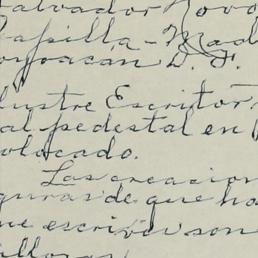 alvador Novo
apilla - Mad
oyoacan D. F.
lustre Escritor
al pedestal en
olocado.
Las creacion
guras de que ha
ue escribe son